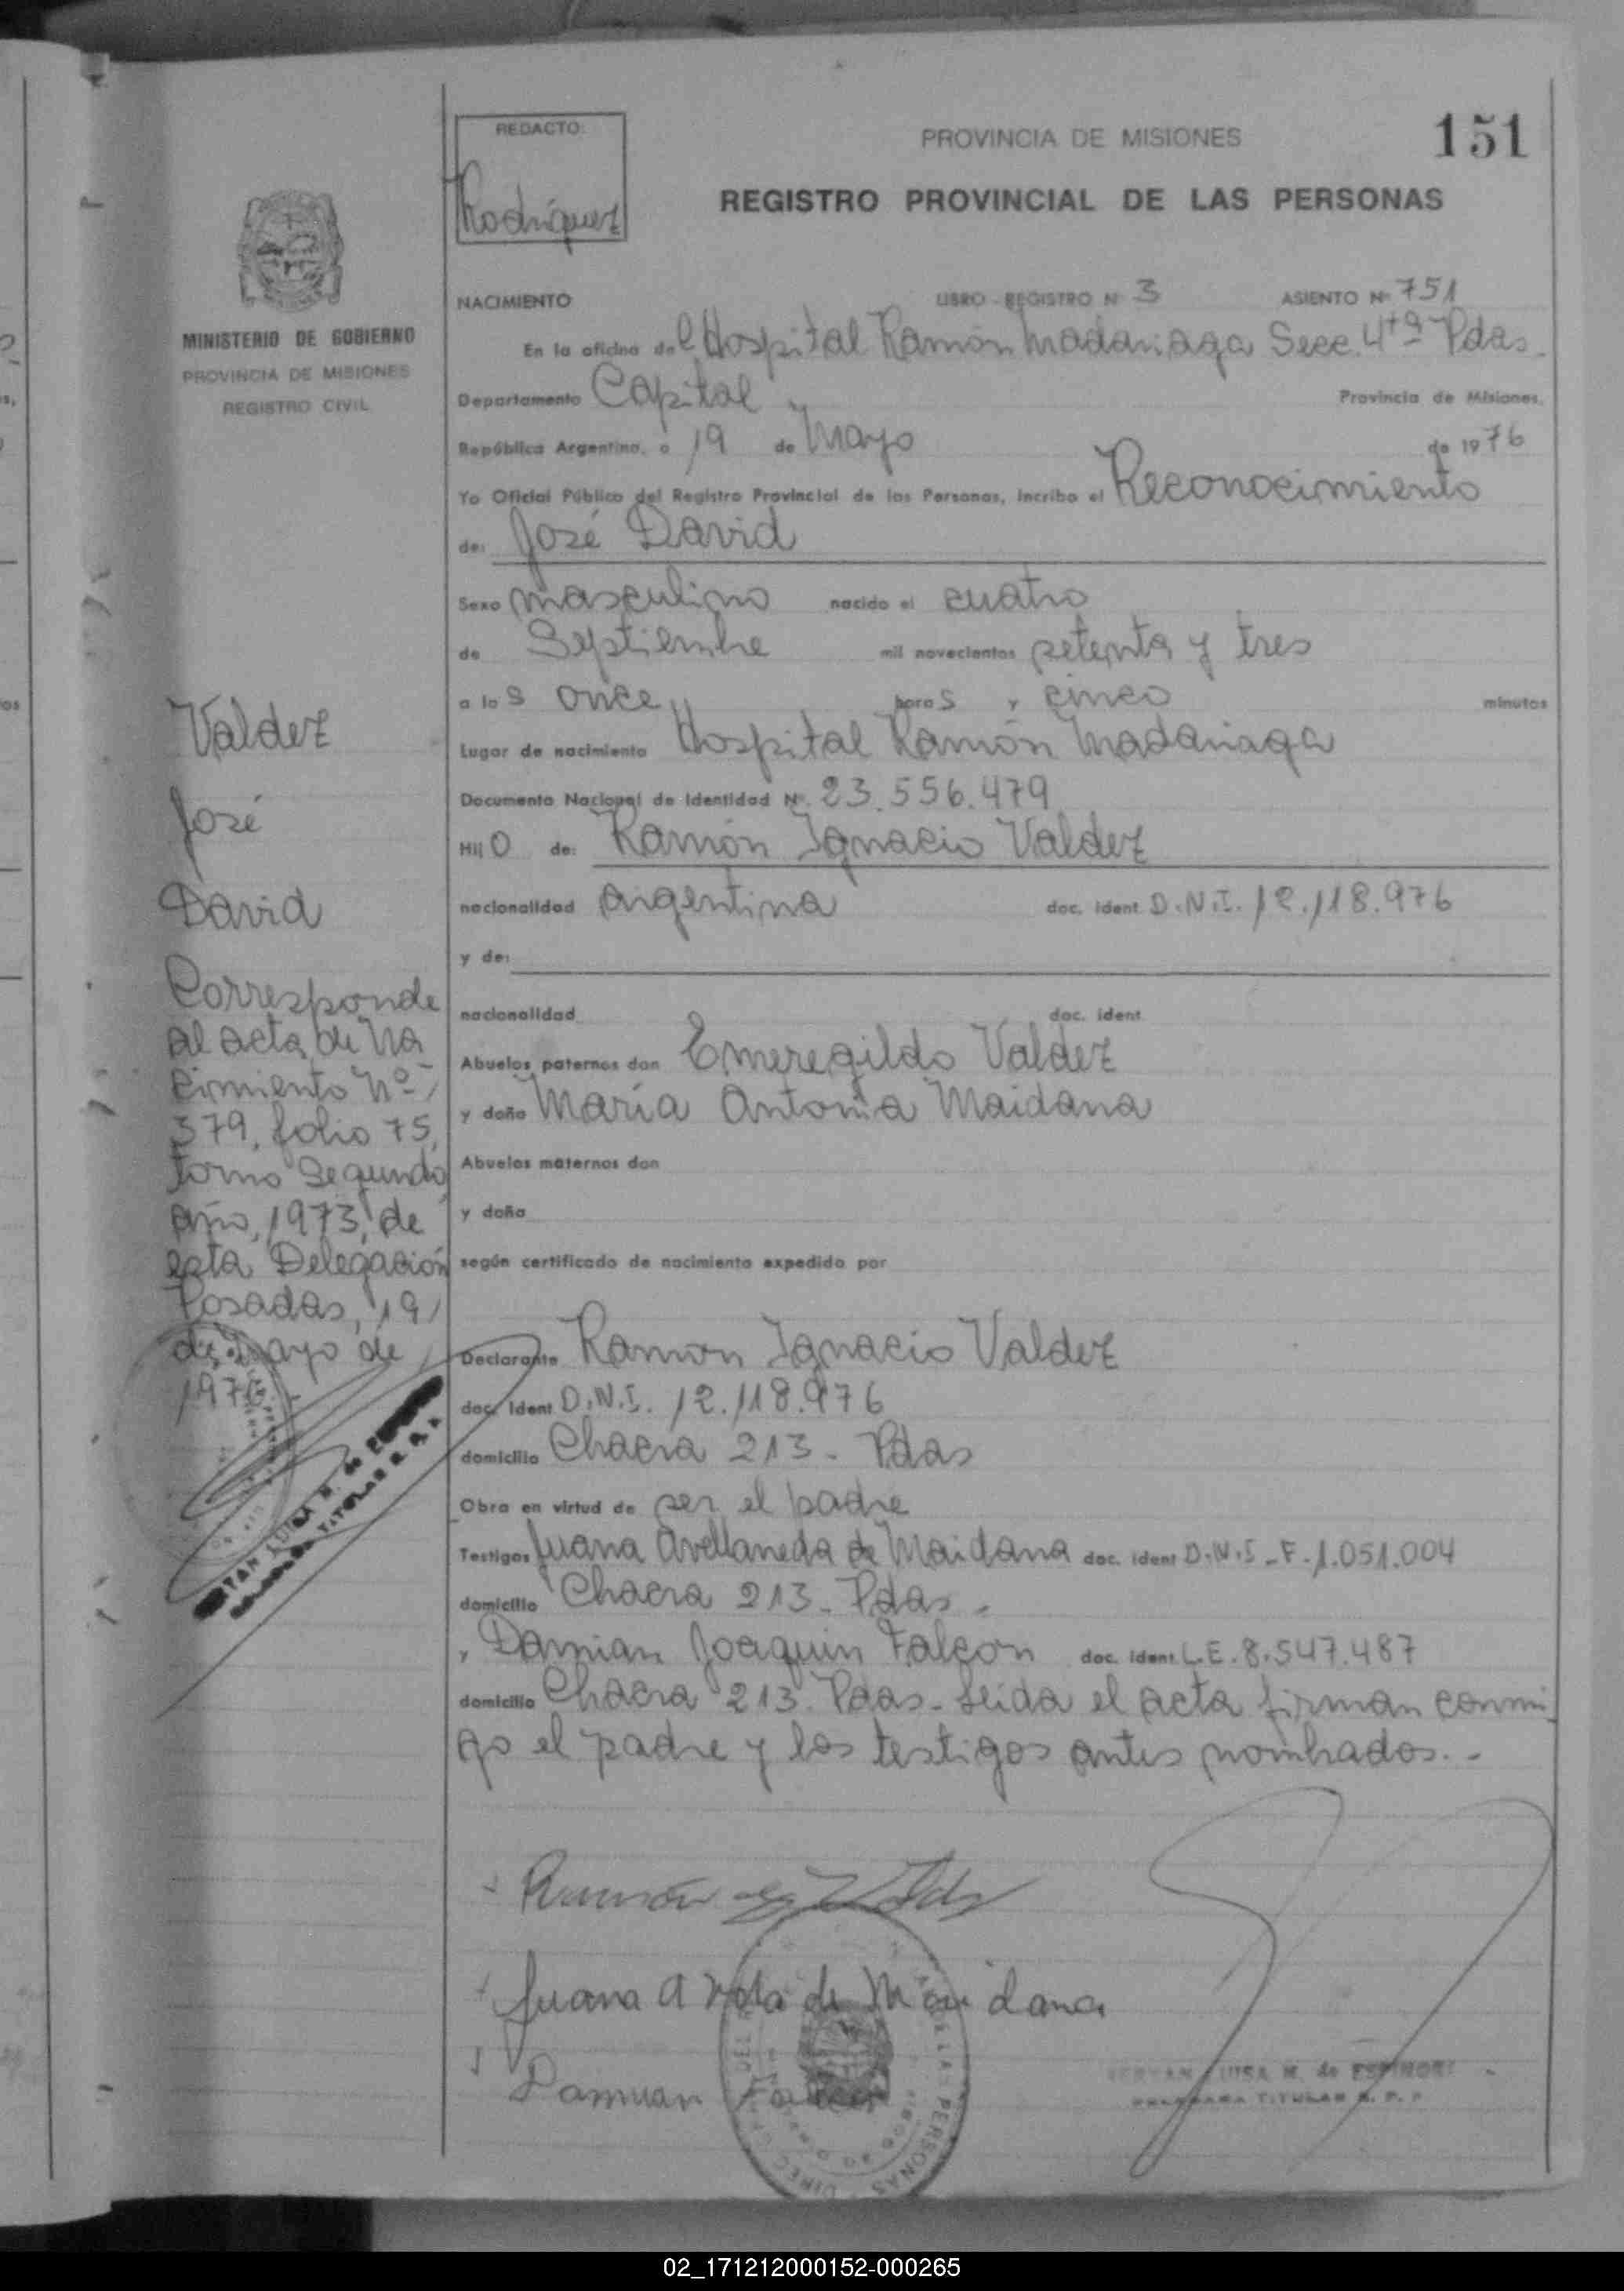 151
REDACTO:
Rodríguez
PROVINCIA DE MISIONES
REGISTRO PROVINCIAL DE LAS PERSONAS
MINISTERIO DE GOBIERNO
PROVINCIA DE MISIONES
REGISTRO CIVIL
NACIMIENTO LIBRO - REGISTRO Nº 3 ASIENTO Nº 751
En la oficina del Hospital Ramón Madariaga Secc. 4ta Pdas.
Departamento Capital Provincia de Misiones,
República Argentina, a 19 de Mayo de 1976
Yo Oficial Público del Registro Provincial de las Personas, incribo el Reconocimiento
de: José David
Sexo masculino nacido el cuatro
de Septiembre mil novecientos setenta y tres
a las once horas y cinco minutos
Lugar de nacimiento Hospital Ramón Madariaga
Documento Nacional de Identidad Nº. 23.556.479
Hijo de: Ramón Ignacio Valdez
nacionalidad argentina doc. ident. D.N.I. 12.118.976
y de:
nacionalidad doc. ident
Abuelos paternos don Emeregildo Valdez
y doña María Antonia Maidana
Abuelos maternos don
y doña
según certificado de nacimiento expedido por
Declarante Ramon Ignacio Valdez
doc. ident D.N.I. 12.118.976
domicilio Chacra 213 - Pdas
Obra en virtud de ser el padre
Testigos Juana Avellaneda de Maidana doc. ident D.N.I - F. 1.051.004
domicilio Chacra 213 - Pdas -
y Damian Joaquin Falcon doc. ident L.E. 8.547.487
domicilio Chacra 213. Pdas - Leida el acta firman conmi
go el padre y los testigos antes nombrados. -
Valdez
José
David
Corresponde
al acta de Na
cimiento Nº
379, folio 75,
tomo Segundo
año, 1973, de
esta Delegación
Posadas, 19
de Mayo de
1976
Ramón
Juana A de Maidana
Damian
LUISA M. de
TITULAR R. P. P.
02_171212000152-000265